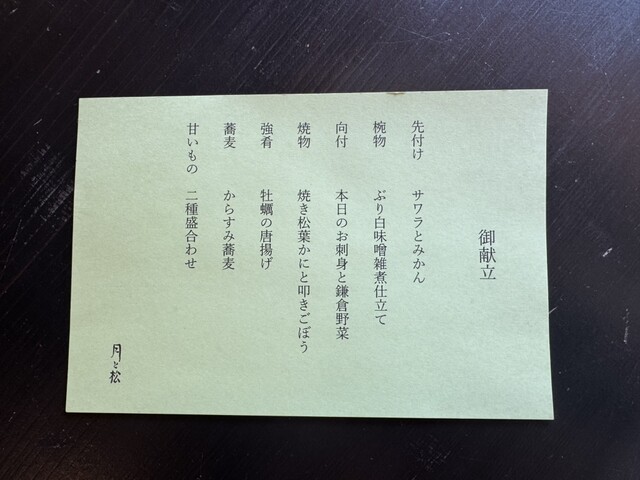 御献立
先付け　サワラとみかん
椀物　ぶり白味噌雑煮仕立て
向付　本日のお刺身と鎌倉野菜
焼物　焼き松葉かにと叩きごぼう
強肴　牡蠣の唐揚げ
蕎麦　からすみ蕎麦
甘いもの　二種盛合わせ
月と松